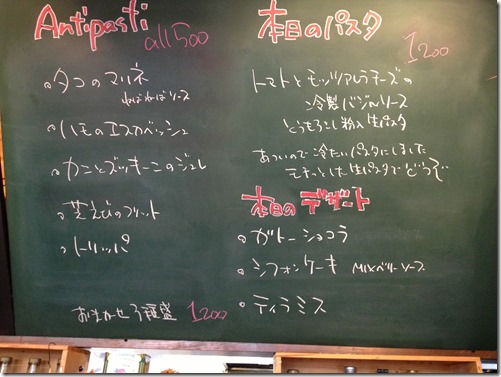 Antipasti
all 500
。タコのマリネ
ねばねばソース
。ハモのエスカベッシュ
。カニとズッキーニのジュレ
。芝えびのフリット
。トリッパ
おまかせ3種盛 1200
本日のパスタ
1200
トマトとモッツァレラチーズの
冷製バジルソース
とうもろこし粉入生パスタ
あついので冷たいパスタにしました
モチっとした生パスタでどうぞ
本日のデザート
。ガトーショコラ
。シフォンケーキ MIXベリーソース
。ティラミス